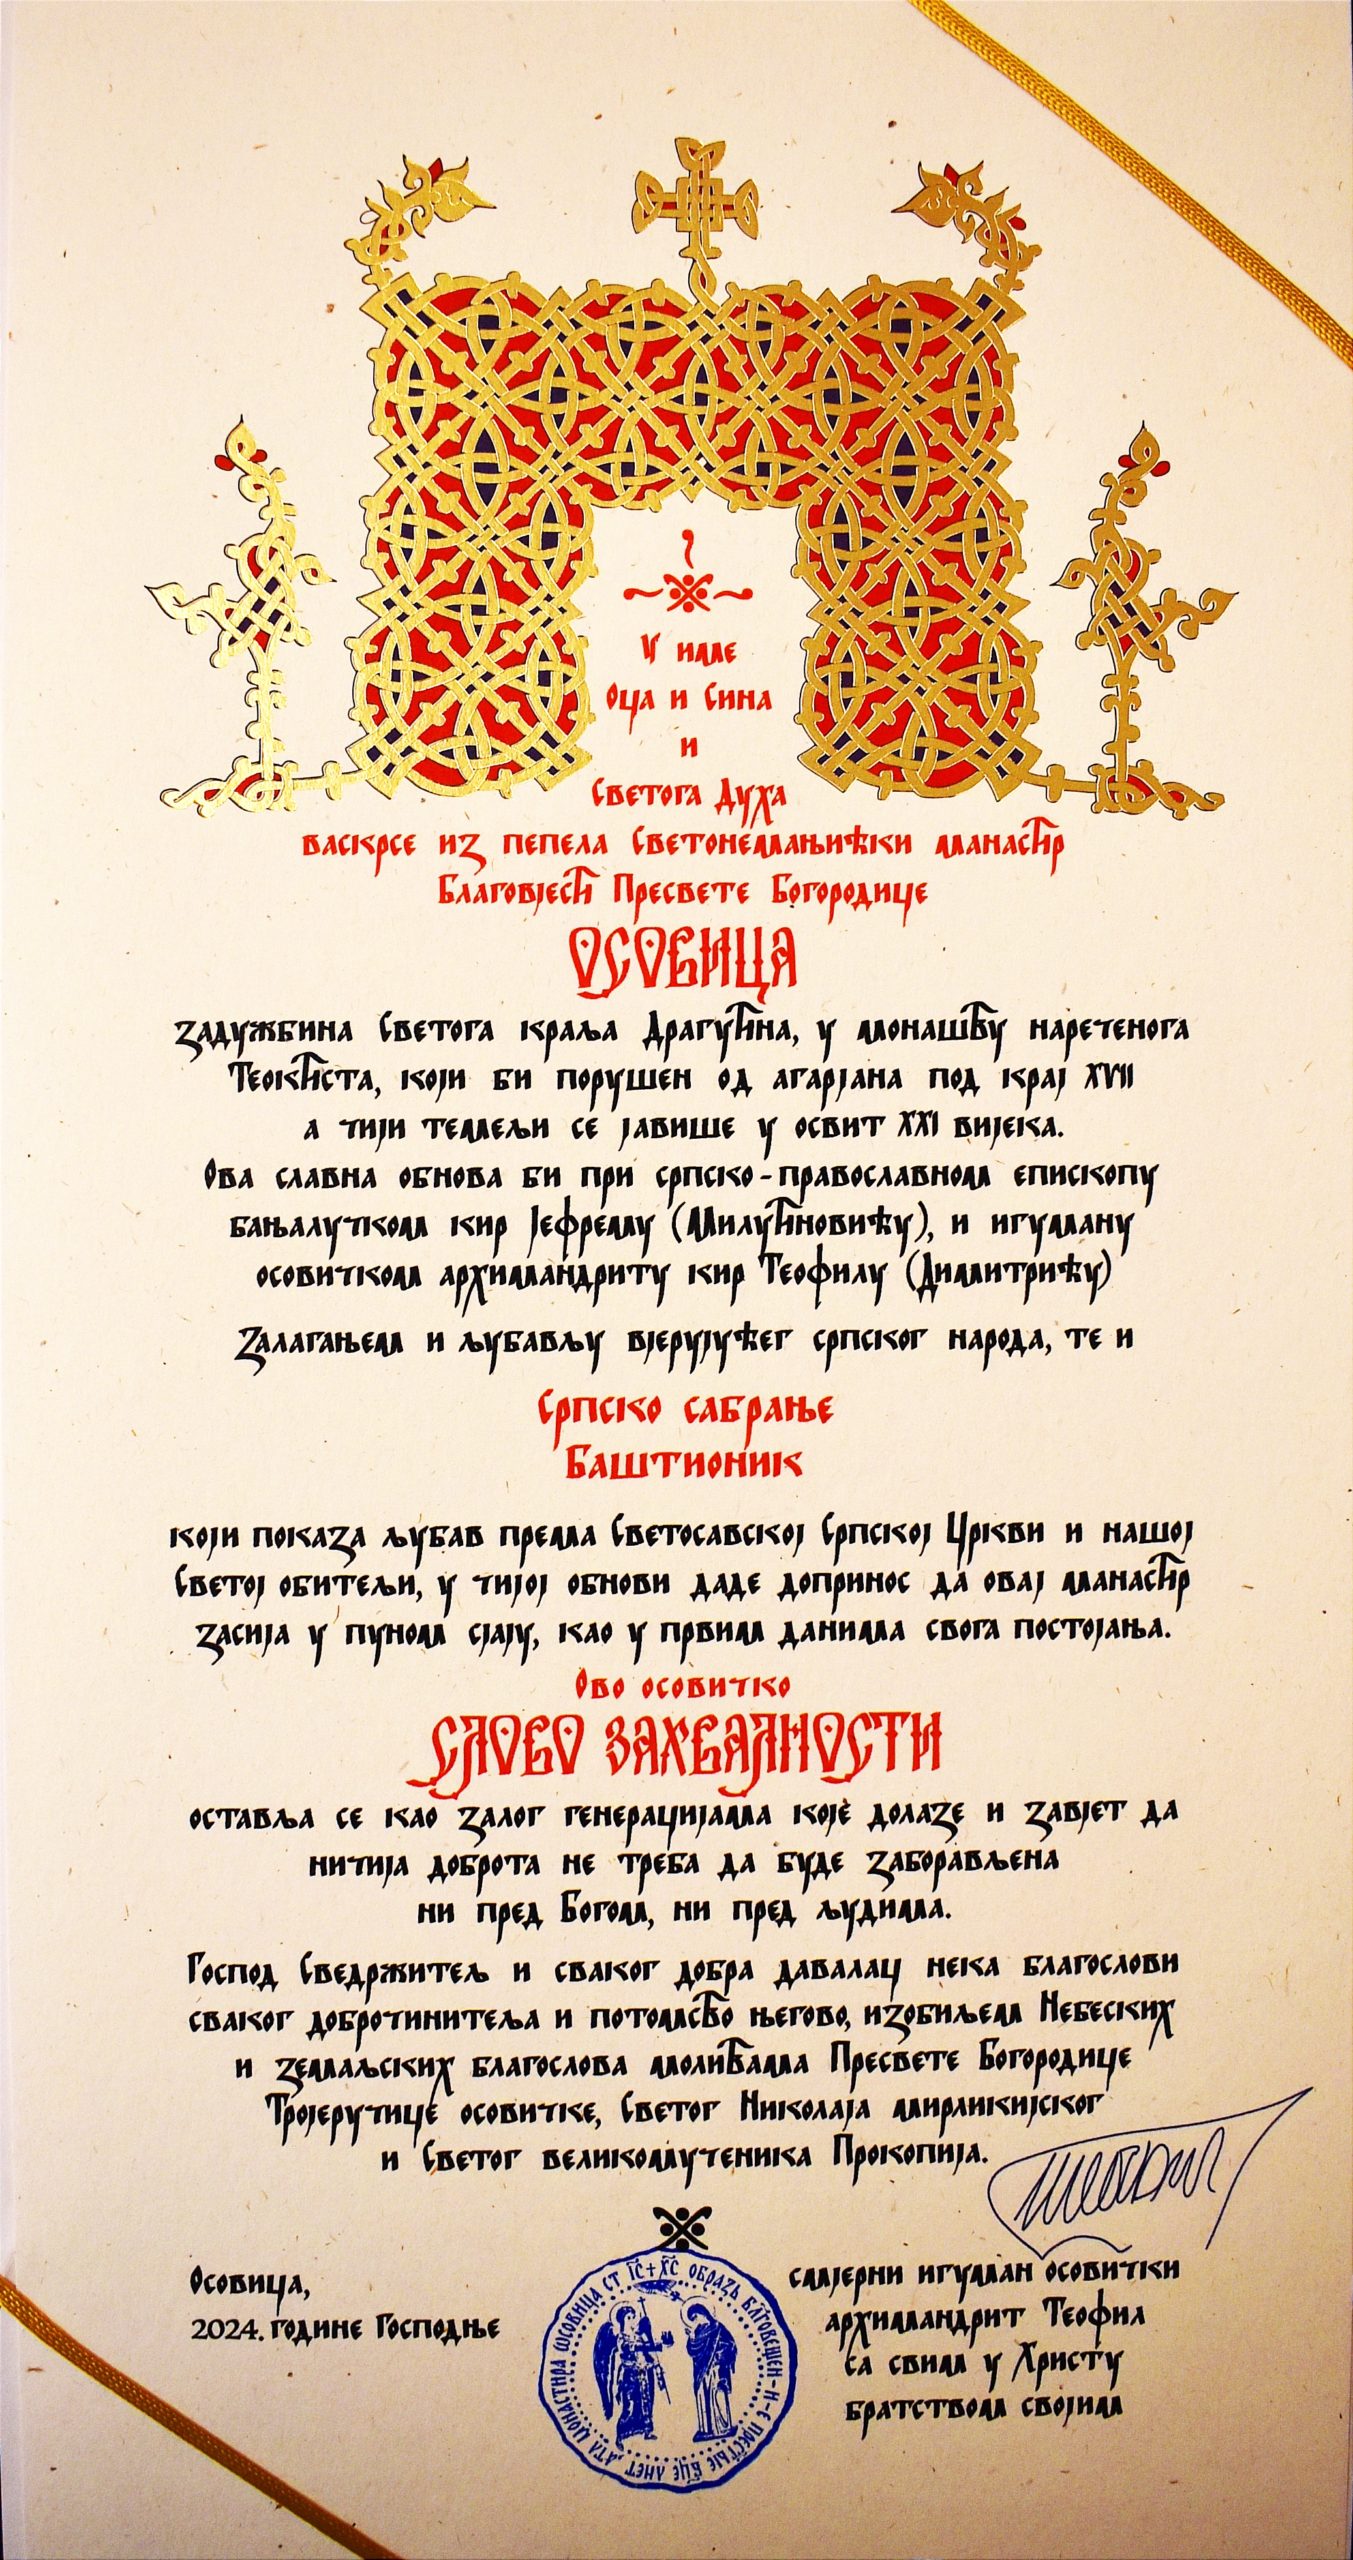 У име
Оца и Сина
и
Светога Духа
васкрсе из пепела Светонемањићки манастир
Благовјести Пресвете Богородице
ОСОВИЦА
задужбина Светога краља Драгутина, у монаштву нареченога
Теоктиста, који би порушен од агарјана под крај XVII
а чији темељи се јавише у освит XXI вијека.
Ова славна обнова би при српско-православном епископу
бањалучком кир Јефрему (Милутиновићу), и игуману
осовичком архимандриту кир Теофилу (Димитрићу)
Залагањем и љубављу вјерујућег српског народа, те и
Српско сабрање
Баштионик
који показа љубав према Светосавској Српској Цркви и нашој
Светој обитељи, у чијој обнови даде допринос да овај манастир
засија у пуном сјају, као у првим данима свога постојања.
Ово осовичко
СЛОВО ЗАХВАЛНОСТИ
оставља се као залог генерацијама које долазе и завјет да
ничија доброта не треба да буде заборављена
ни пред Богом, ни пред људима.
Господ Сведржитељ и сваког добра давалац нека благослови
сваког доброчинитеља и потомство његово, изобиљем Небеских
и земаљских благослова молитвама Пресвете Богородице
Тројеручице осовичке, Светог Николаја мирликијског
и Светог великомученика Прокопија.
Осовица,
2024. године Господње
смјерни игуман осовички
архимандрит Теофил
са свим у Христу
братством својим